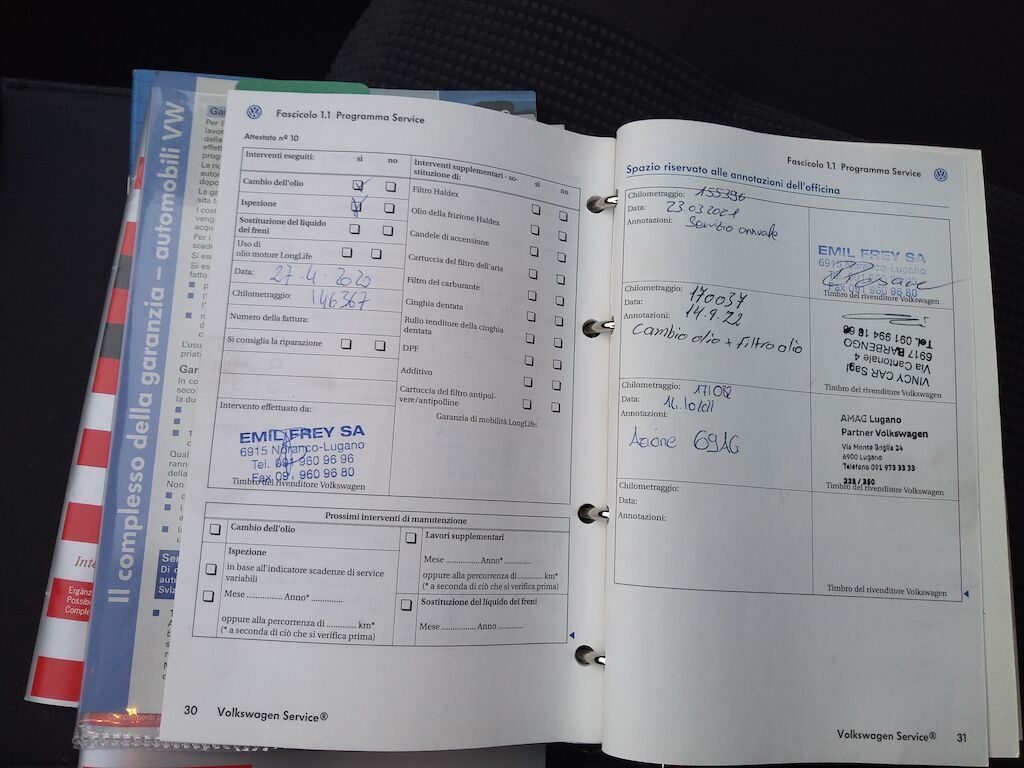 Il complesso della garanzia – automobili VW
Fascicolo 1.1 Programma Service
Attestato nº 10
Interventi eseguiti: sì no
Cambio dell'olio
Ispezione
Sostituzione del liquido
dei freni
Uso di
olio motore LongLife
Data: 27-4-2020
Chilometraggio: 146367
Numero della fattura:
Si consiglia la riparazione
Intervento effettuato da:
EMIL FREY SA
6915 Noranco-Lugano
Tel. 091 960 96 96
Fax 091 960 96 80
Timbro del rivenditore Volkswagen
Interventi supplementari - so-
stituzione di: sì no
Filtro Haldex
Olio della frizione Haldex
Candele di accensione
Cartuccia del filtro dell'aria
Filtro del carburante
Cinghia dentata
Rullo tenditore della cinghia
dentata
DPF
Additivo
Cartuccia del filtro antipol-
vere/antipolline
Garanzia di mobilità LongLife:
Prossimi interventi di manutenzione
Cambio dell'olio
Ispezione
in base all'indicatore scadenze di service
variabili
Mese ............... Anno* .............
oppure alla percorrenza di ............ km*
(* a seconda di ciò che si verifica prima)
Lavori supplementari
Mese ............... Anno* .............
oppure alla percorrenza di ........... km*
(* a seconda di ciò che si verifica prima)
Sostituzione del liquido dei freni
Mese ............... Anno .............
30 Volkswagen Service®
Fascicolo 1.1 Programma Service
Spazio riservato alle annotazioni dell'officina
Chilometraggio: 155396
Data: 23.03.2021
Annotazioni: Servizio annuale
EMIL FREY SA
6915 Noranco-Lugano
Fax 091 960 96 80
Timbro del rivenditore Volkswagen
Chilometraggio: 170037
Data: 14.9.22
Annotazioni:
Cambio olio + filtro olio
VINCY CAR Sagl
Via Cantonale 4
6917 BARBENGO
Tel. 091 994 18 68
Timbro del rivenditore Volkswagen
Chilometraggio: 171082
Data:
Annotazioni:
Azione 69AG
AMAG Lugano
Partner Volkswagen
Via Monte Boglia 24
6900 Lugano
Telefono 091 973 33 33
223 / 350
Timbro del rivenditore Volkswagen
Chilometraggio:
Data:
Annotazioni:
Timbro del rivenditore Volkswagen
Volkswagen Service® 31